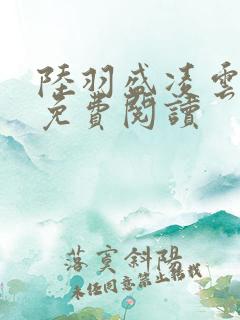 陸羽盛凌雲
免費閱讀
落寞斜陽
未經同意禁止轉載